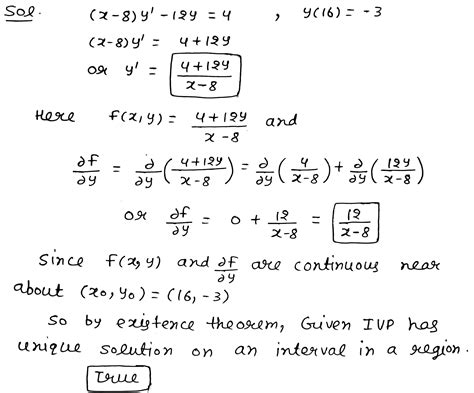 Sol. (x-8)y' - 12y = 4 , y(16) = -3
(x-8)y' = 4+12y
or y' = 4+12y / x-8
Here f(x,y) = 4+12y / x-8 and
∂f/∂y = ∂/∂y (4+12y / x-8) = ∂/∂y (4 / x-8) + ∂/∂y (12y / x-8)
or ∂f/∂y = 0 + 12 / x-8 = 12 / x-8
Since f(x,y) and ∂f/∂y are continuous near
about (x₀, y₀) = (16, -3)
So by existence theorem, Given IVP has
unique solution on an interval in a region.
True